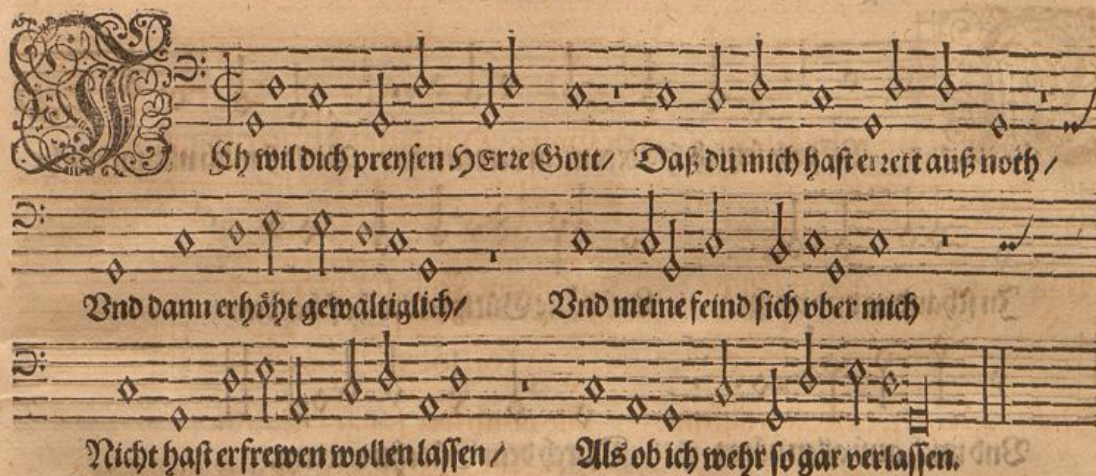 ICh wil dich preysen HErre Gott/ Daß du mich hast errett auß noth/
Vnd dann erhöht gewaltiglich/ Vnd meine feind sich vber mich
Nicht hast erfrewen wollen lassen/ Als ob ich wehr so gar verlassen.